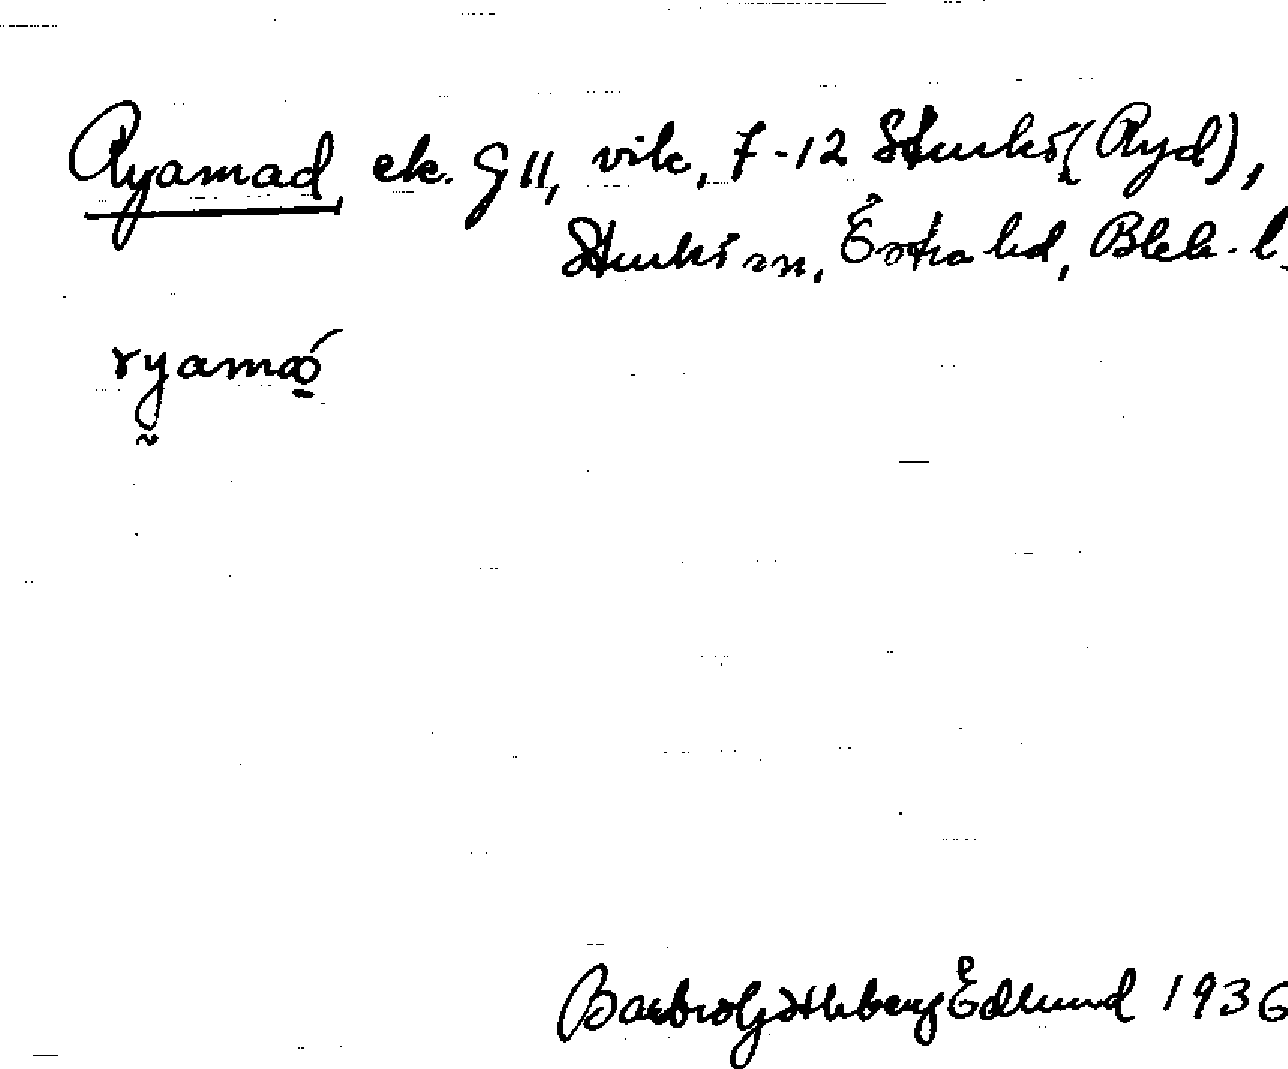 Ryamad ek. G 11, vik, 7-12 Sturkö (Ryd),
Sturkö sn, Östra hd, Blek. l.
ryama
Barbro Götheberg Edlund 1936